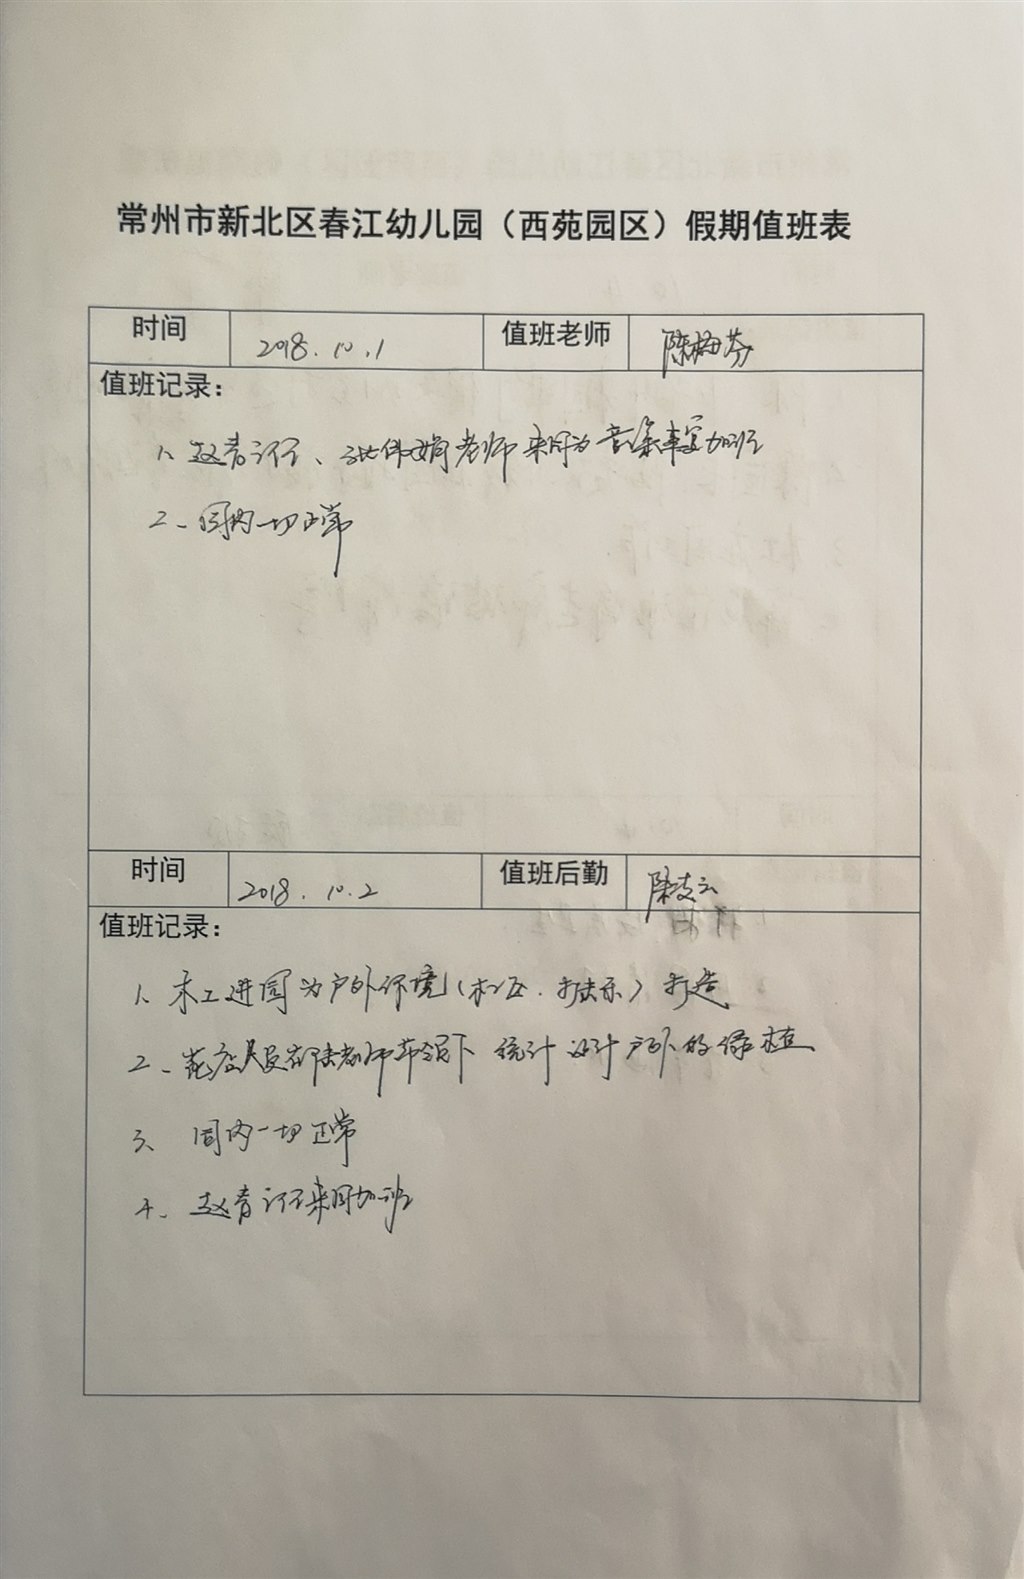 常州市新北区春江幼儿园（西苑园区）假期值班表
时间 2018.10.1 值班老师 陈梅芬
值班记录：
1、赵青 老师来园为 加班
2、园内一切正常
时间 2018.10.2 值班后勤 陈支云
值班记录：
1、木工进园为户外环境（木工区． ）打造
2、花店人员在陆老师带领下 统计设计户外的绿植
3、园内一切正常
4、赵青 来园加班